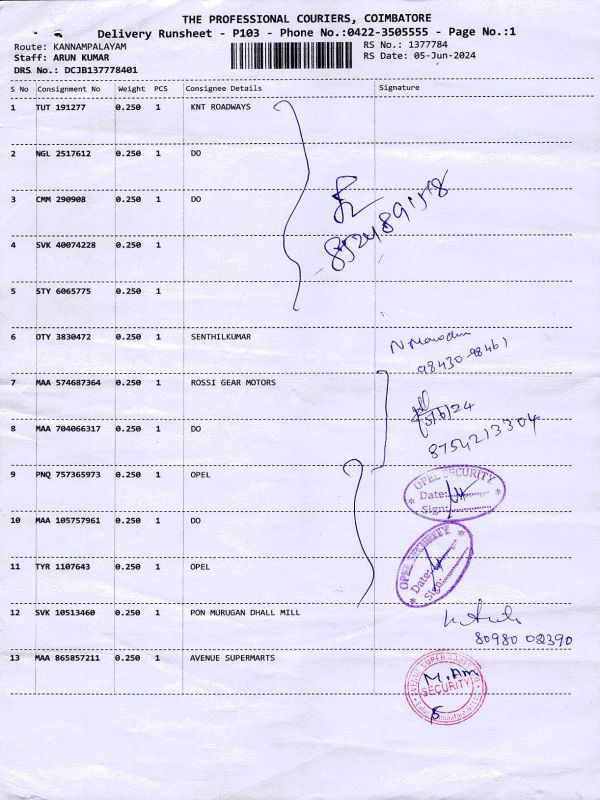 THE PROFESSIONAL COURIERS, COIMBATORE
Delivery Runsheet - P103 - Phone No.:0422-3505555 - Page No.:1
Route: KANNAMPALAYAM
RS No.: 1377784
Staff: ARUN KUMAR
RS Date: 05-Jun-2024
DRS No.: DCJB137778401
S No Consignment No Weight PCS Consignee Details Signature
1 TUT 191277 0.250 1 KNT ROADWAYS
2 NGL 2517612 0.250 1 DO
3 CMM 290908 0.250 1 DO
4 SVK 40074228 0.250 1
5 STY 6065775 0.250 1
6 OTY 3830472 0.250 1 SENTHILKUMAR
98430 98461
7 MAA 574687364 0.250 1 ROSSI GEAR MOTORS
5/6/24
8 MAA 704066317 0.250 1 DO
8754213304
9 PNQ 757365973 0.250 1 OPEL
OPEL SECURITY
Date:
Sign:
10 MAA 105757961 0.250 1 DO
11 TYR 1107643 0.250 1 OPEL
OPEL SECURITY
Date:
Sign:
12 SVK 10513460 0.250 1 PON MURUGAN DHALL MILL
80980 02390
13 MAA 865857211 0.250 1 AVENUE SUPERMARTS
M.Am
SECURITY